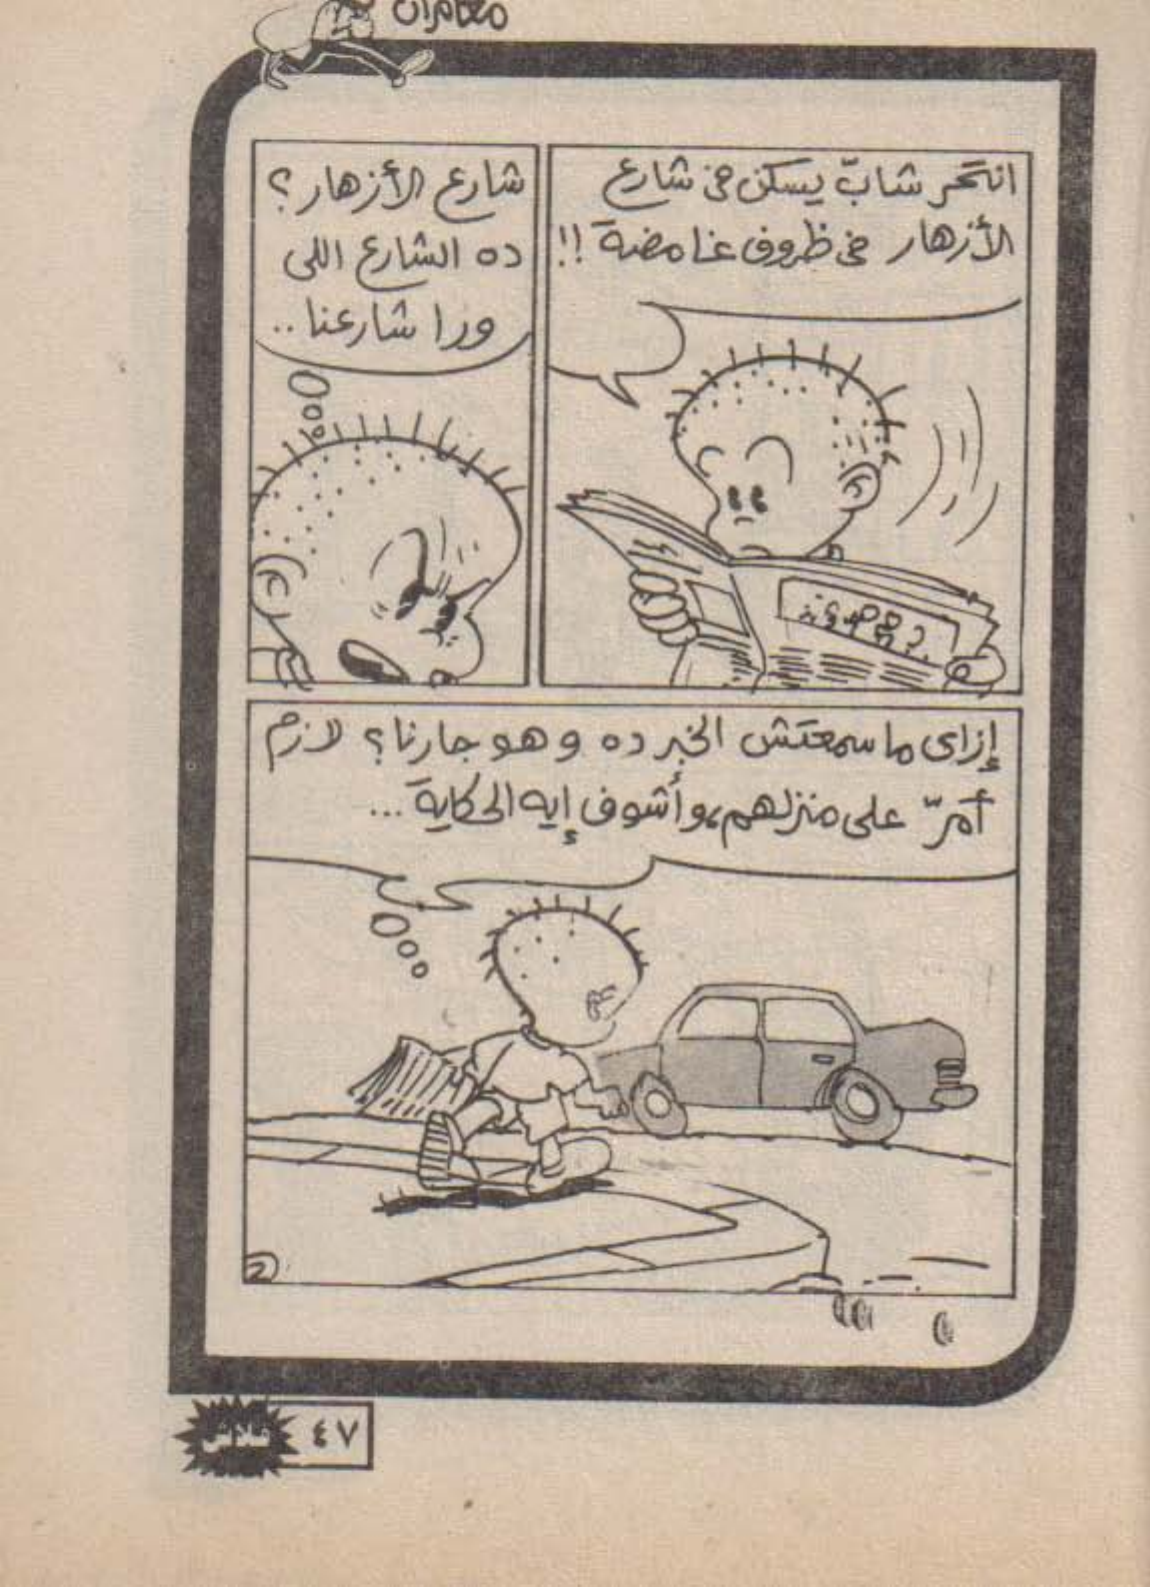 مغامرات
انتحر شابّ يسكن فى شارع
الأزهار فى ظروف غامضة !!
شارع الأزهار ؟
ده الشارع اللى
ورا شارعنا ..
إزاى ما سمعتش الخبر ده وهو جارنا ؟ لازم
أمرّ على منزلهم، وأشوف إيه الحكاية ...
2
فلاش
٤٧